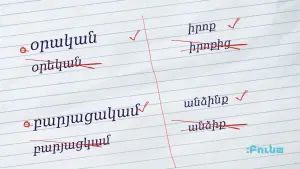 օրական
օրեկան
բարյացակամ
բարյացկամ
իրոք
իրոքից
անձինք
անձիք
:Բուն